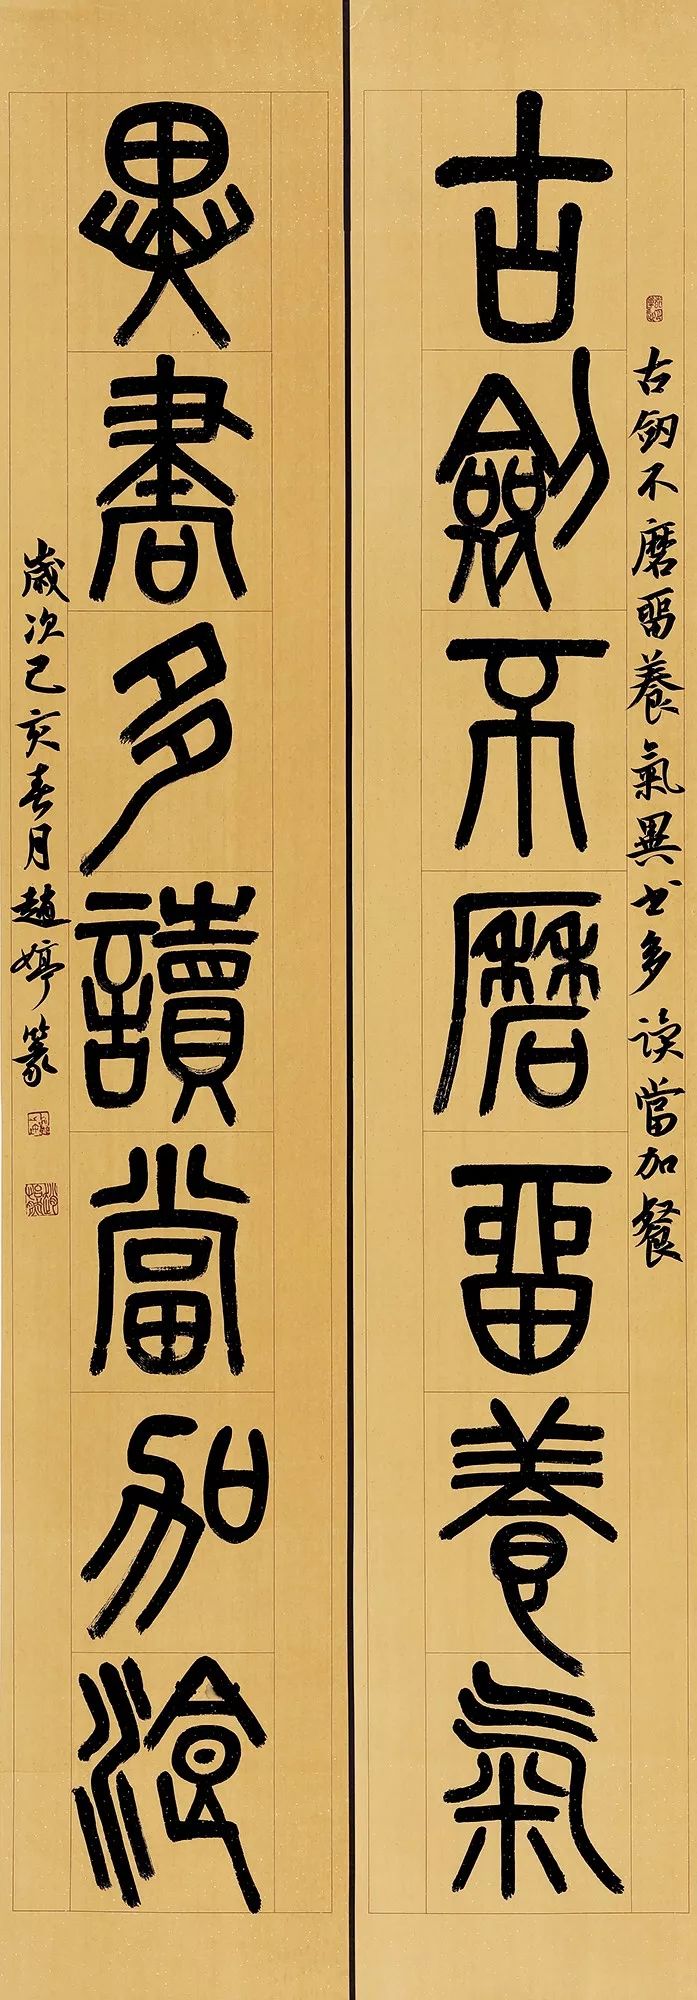 古劍不磨畱養氣
異書多讀當加湌
古劒不磨畱養氣異书多读當加餐
歲次己亥春月趙婷篆